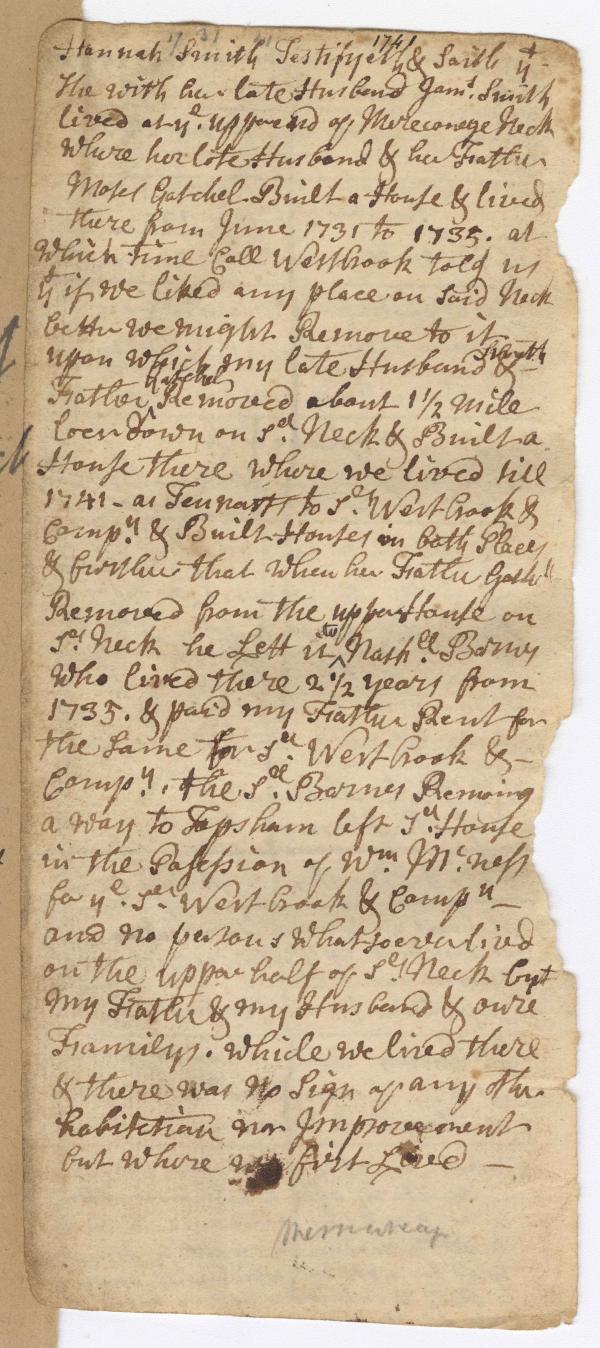 Hannah Smith Testifyeth & Saith yt
She with her late Husband Jams. Smith
lived at ye. upper end of Mereconege Neck
where her late Husband & her Father
Moses Gatchel Built a House & lived
there from June 1731 to 1735. at
which time Coll Westbrook told us
yt if we liked any place on said Neck
better we might Remove to it
upon which my late Husband Smith &
Father Gatchel Removed about 1 1/2 mile
loer Down on sd. Neck & Built a
House there where we lived till
1741 - as Tennants to sd. Westbrook &
Compy. & Built Houses in both Places
& further that when her Father Gatchll
Removed from the upper House on
sd. Neck he Left it to Nathll. Barnes
who lived there 2 1/2 years from
1735. & paid my Father Rent for
the same for sd. Westbrook & -
Compy. , the sd. Barnes Removing
a way to Topsham left sd. House
in the Possession of Wm. Mcness
for ye. sd. Westbrook & Compy -
and no persons whatsoever lived
on the upper half of sd. Neck but
my Father & my Husband & owre
Familys. while we lived there
& there was No Sign of any other
habitation nor Improvement
but where we first Lived -